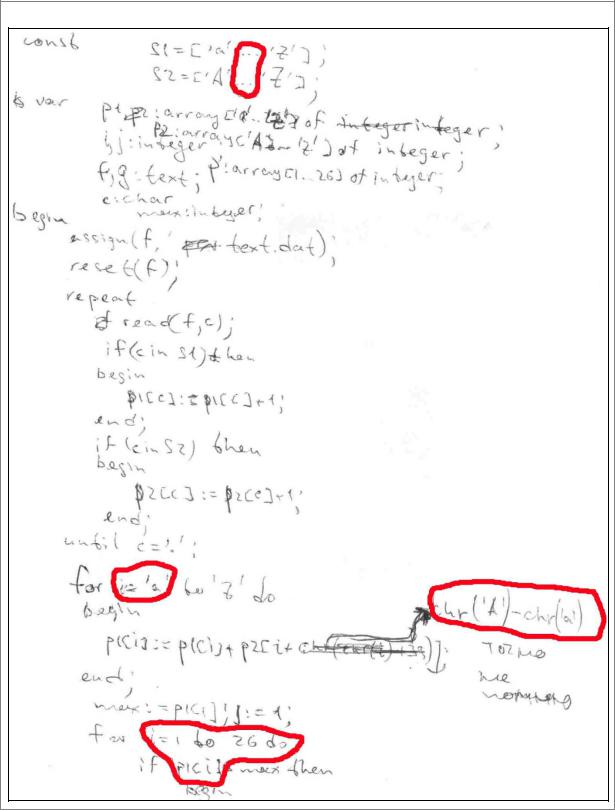 const S1=['a'...'z'];
S2=['A'...'Z'];
var p1, p2:array['a'..'z'] of integer integer;
p2:array['A'..'Z'] of integer;
i,j:integer
f,g:text; p':array[1..26] of integer;
c:char
max:integer;
begin
assign(f,' text.dat);
reset(f);
repeat
read(f,c);
if(c in S1)then
begin
p1[c]:=p1[c]+1;
end;
if (c in S2) then
begin
p2[c]:=p2[c]+1;
end;
until c='.';
for i='a' to 'z' do
begin
chr('A')-chr('a')
p1[i]:=p1[i]+p2[i+ )];
точно
не
end;
max:=p1[i];j:=1;
for i=1 to 26 do
if p1[i] max then
begin